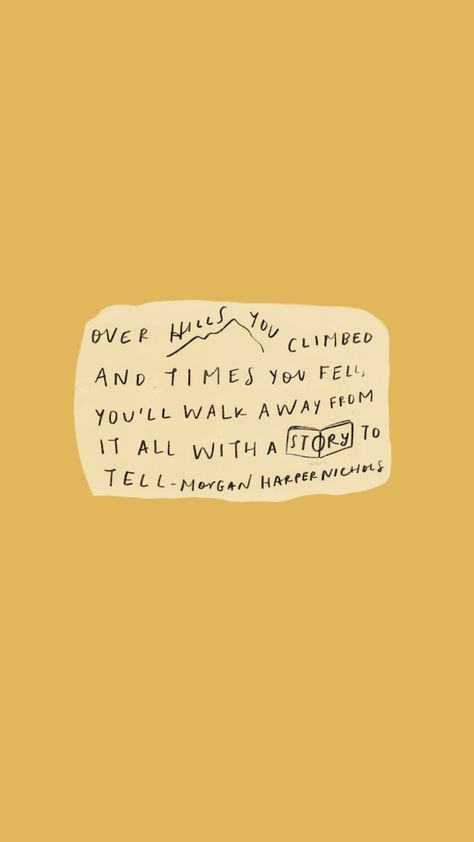 OVER HILLS YOU CLIMBED
AND TIMES YOU FELL,
YOU'LL WALK AWAY FROM
IT ALL WITH A STORY TO
TELL - MORGAN HARPER NICHOLS